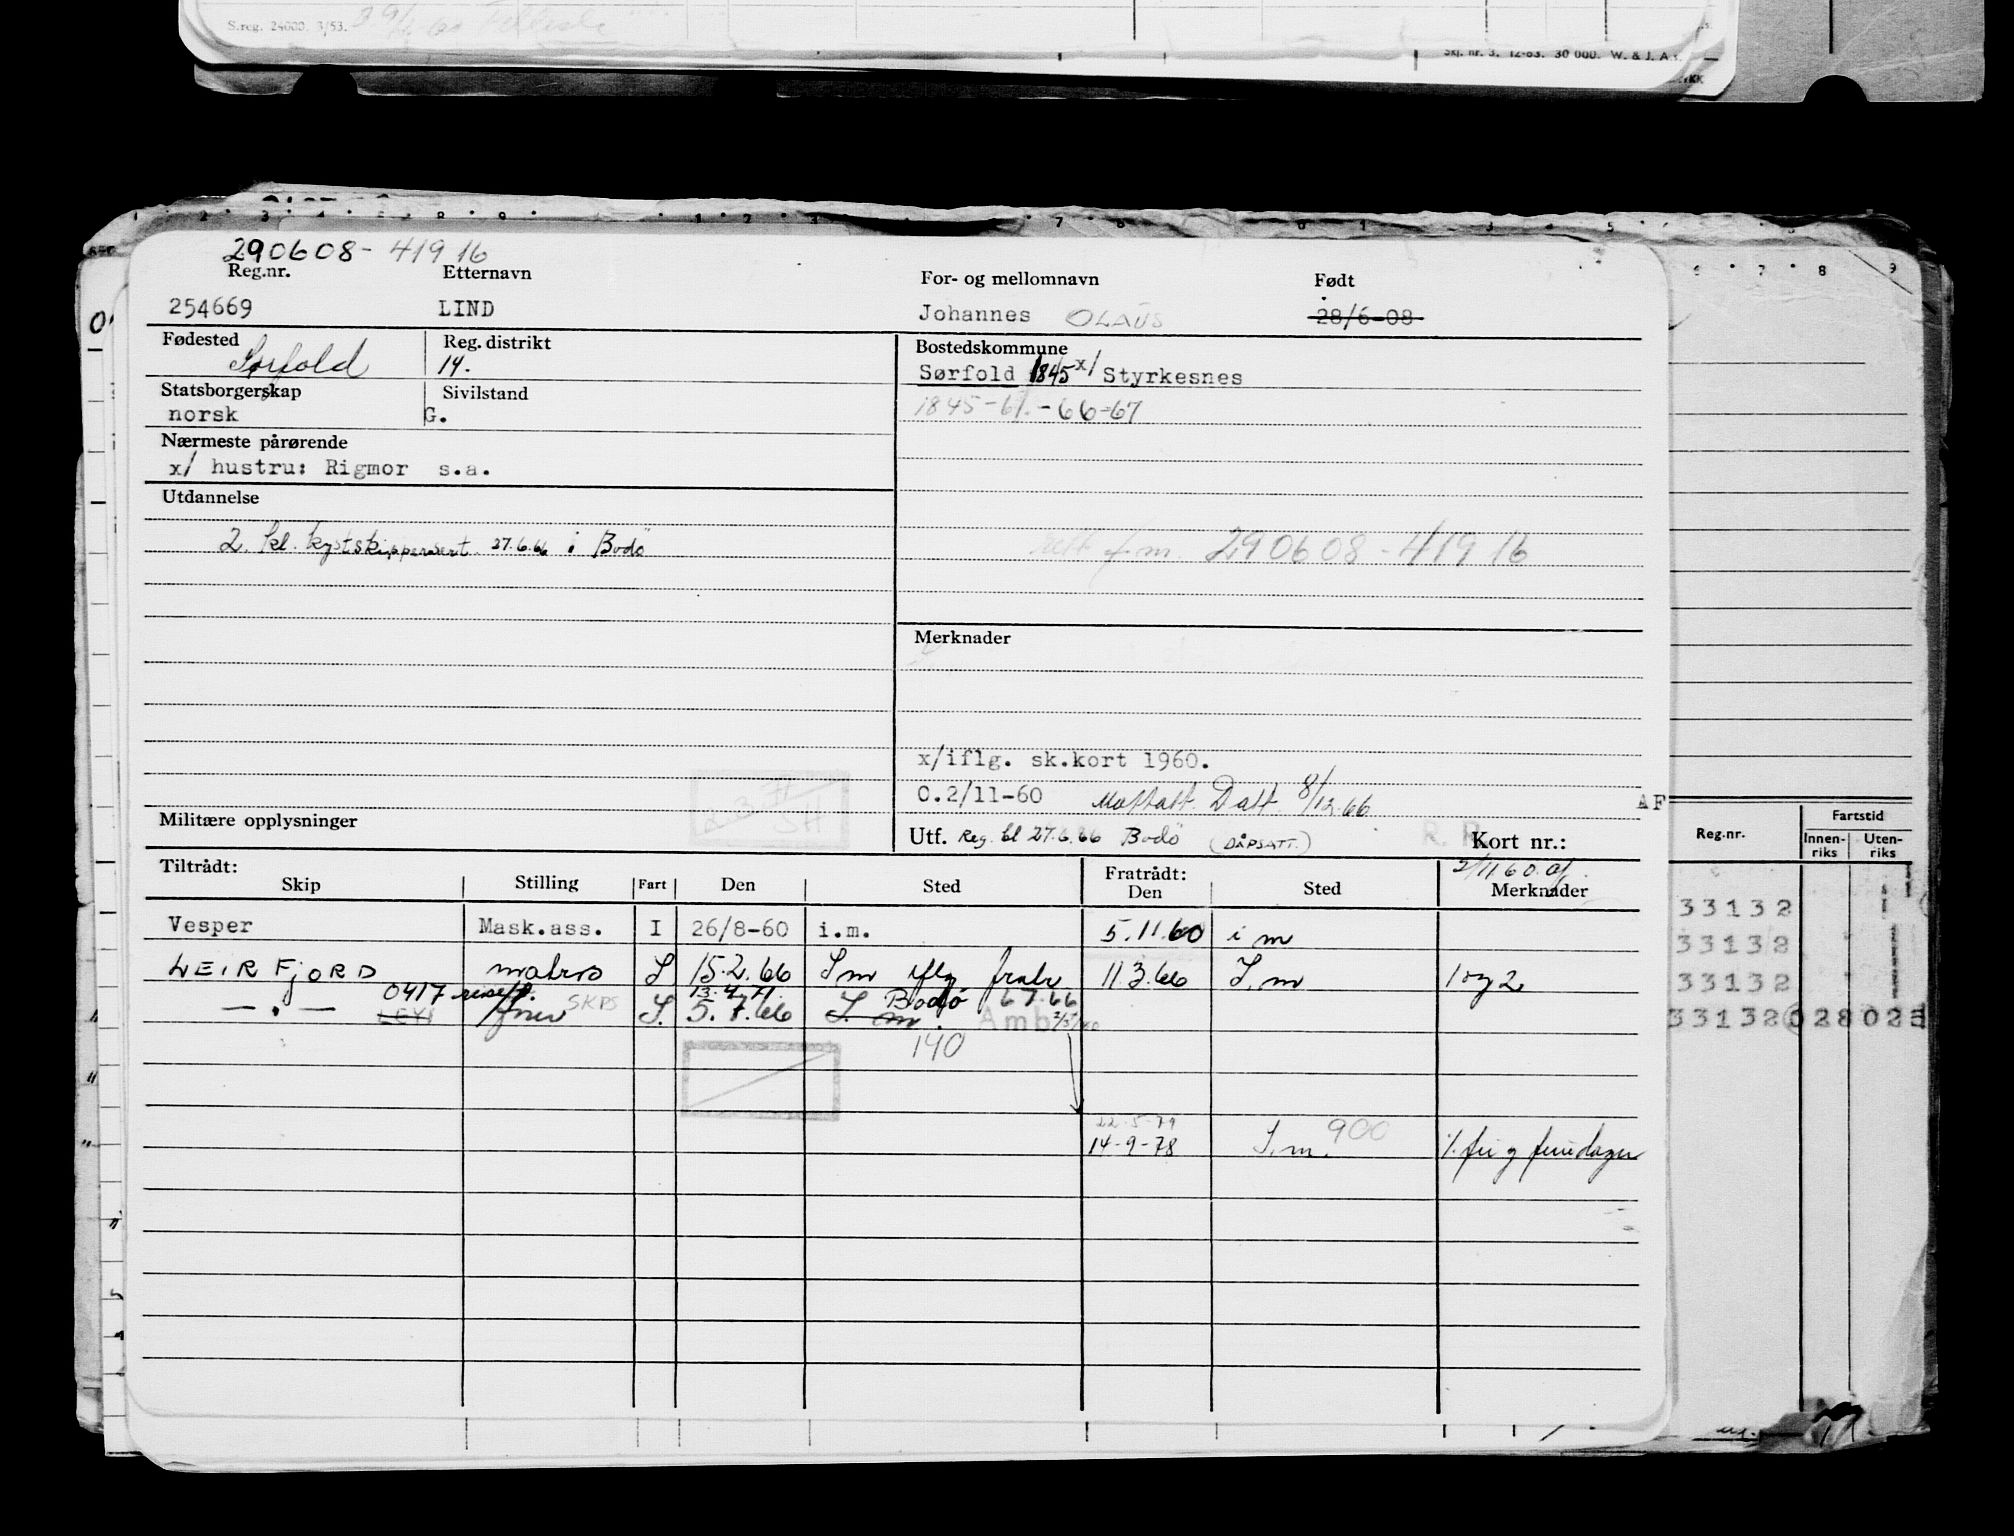 S.reg. 24000. 3/53.
Skj. nr. 3. 12-63. 30 000. W. & J. A
290608-41916
Reg.nr. Etternavn For- og mellomnavn Født
254669 LIND Johannes OLAUS 28/6-08
Fødested Reg. distrikt Bostedskommune
Sørfold 14. Sørfold 1845 x/ Styrkesnes
Statsborgerskap Sivilstand
norsk G. 1845-61.-66-67
Nærmeste pårørende
x/ hustru: Rigmor s.a.
Utdannelse
2. kl. kystskippersert. 27.6.66 i Bodö
f.m. 290608-41916
Merknader
x/iflg. sk.kort 1960.
0.2/11-60 Mottatt Datt 8/12.66
AF
Militære opplysninger Utf. Reg. bl 27.6.66 Bodö (DÅPSATT.) Kort nr.:
Reg.nr. Fartstid
Innen-riks Uten-riks
Tiltrådt: Fratrådt: 2/11 60
Skip Stilling Fart Den Sted Den Sted Merknader
Vesper Mask.ass. I 26/8-60 i.m. 5.11.60 i m
LEIRFJORD matros S 15.2.66 S m iflg fratr 11 3.66 S.m 1 og 2
0417 13.4.71 Bodø 6 7.66
— . — LEYI SKPS S. 5.7.66 S. m. Amb
140
22-5-79
14-9-78 S.m. 900 /. fri g feriedager
33132
33132
33132
33132 028 025